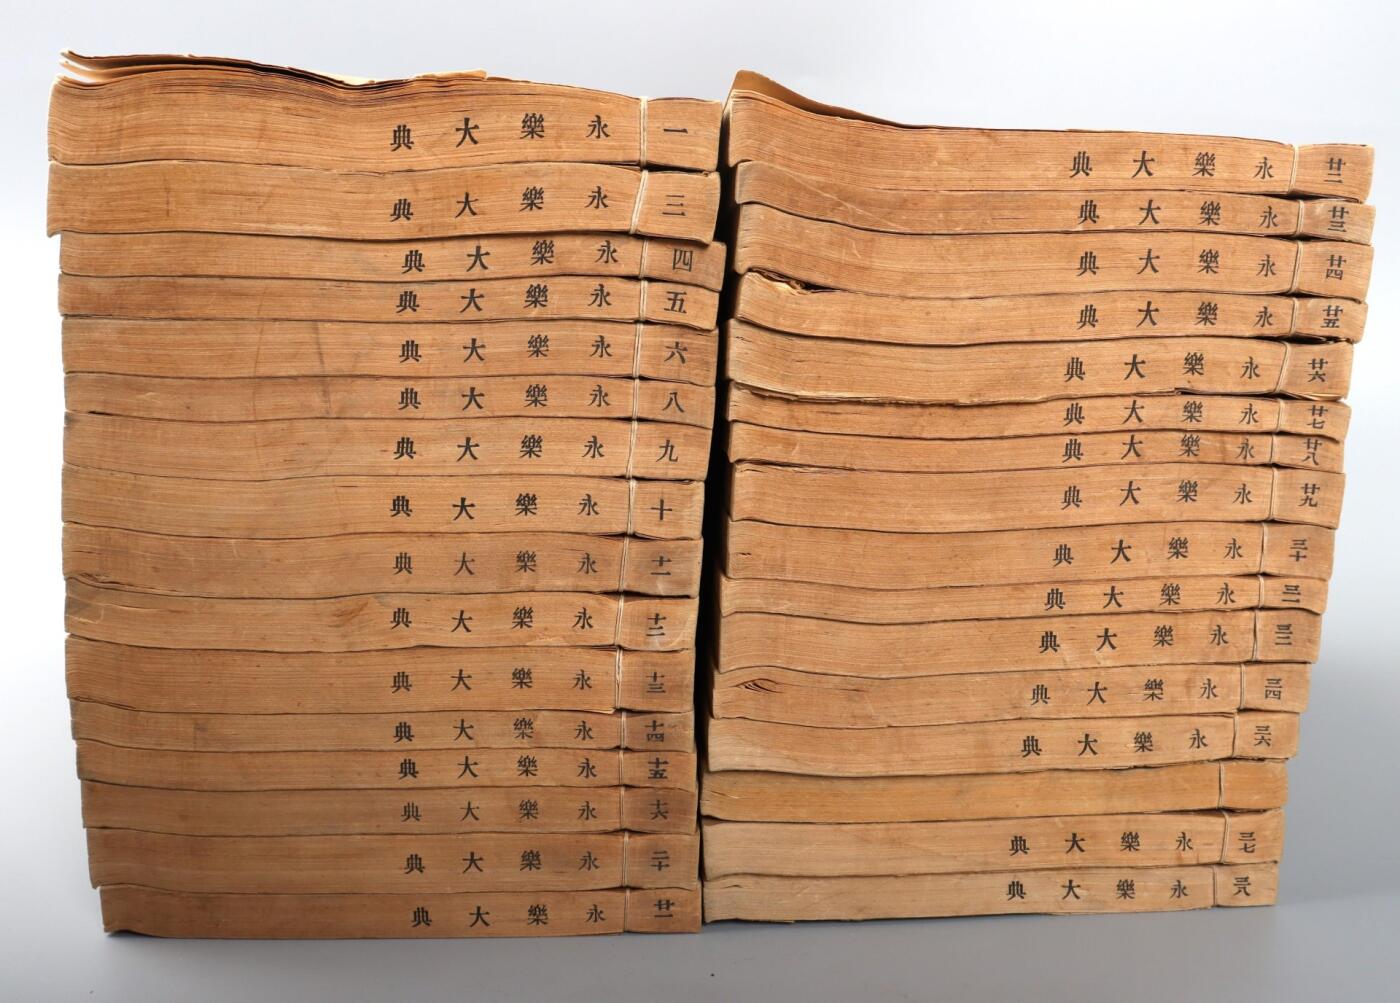 一 永樂大典
三 永樂大典
四 永樂大典
五 永樂大典
六 永樂大典
八 永樂大典
九 永樂大典
十 永樂大典
十一 永樂大典
十二 永樂大典
十三 永樂大典
十四 永樂大典
十五 永樂大典
十六 永樂大典
二十 永樂大典
廿一 永樂大典
廿二 永樂大典
廿三 永樂大典
廿四 永樂大典
廿五 永樂大典
廿六 永樂大典
廿七 永樂大典
廿八 永樂大典
廿九 永樂大典
三十 永樂大典
永樂大典
永樂大典
三四 永樂大典
三六 永樂大典
三七 永樂大典
三八 永樂大典